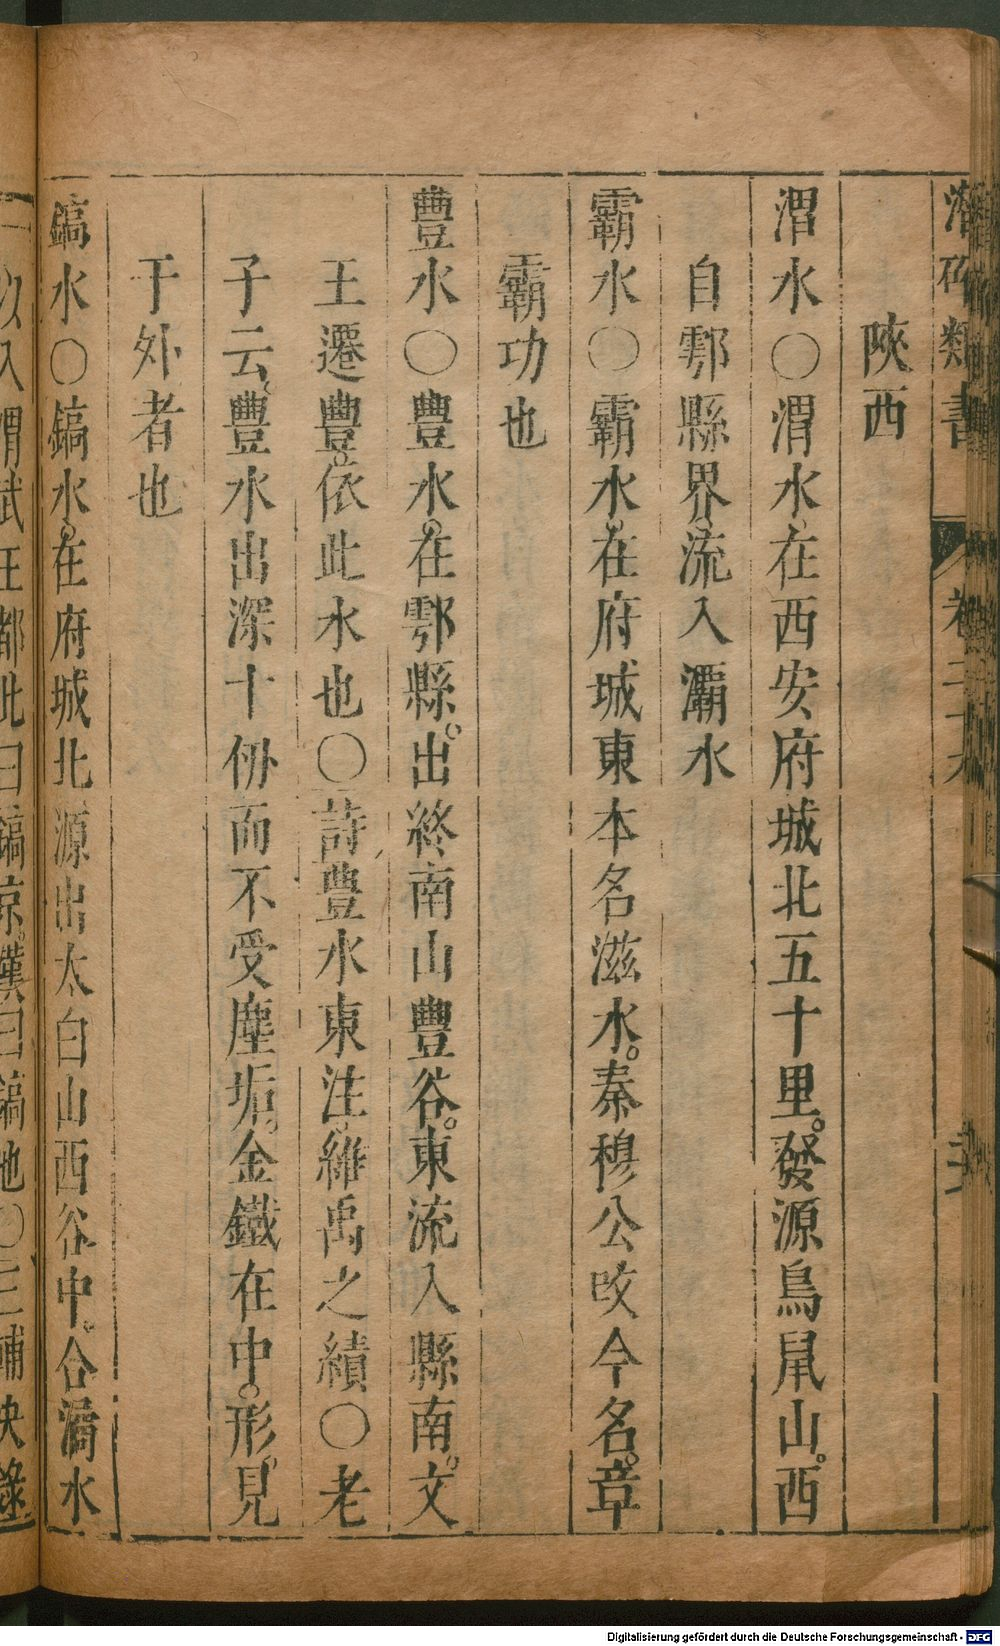 潛确類書
卷二十六
陝西
渭水○渭水在西安府城北五十里。發源鳥鼠山。西
自鄠縣界流入灞水
霸水○霸水。在府城東本名滋水。秦穆公改今名。章
霸功也
豐水○豐水。在鄠縣。出終南山豐谷。東流入縣南。文
王遷豐。依此水也○詩豐水東注、維禹之績○老
子云。豐水出深十仞而不受塵垢。金鐵在中。形。見
于外者也
鎬水○鎬水。在府城北源出太白山西谷中。合潏水
以入渭武王都此曰鎬京。漢曰鎬池○三輔決錄
Digitalisierung gefördert durch die Deutsche Forschungsgemeinschaft - DFG